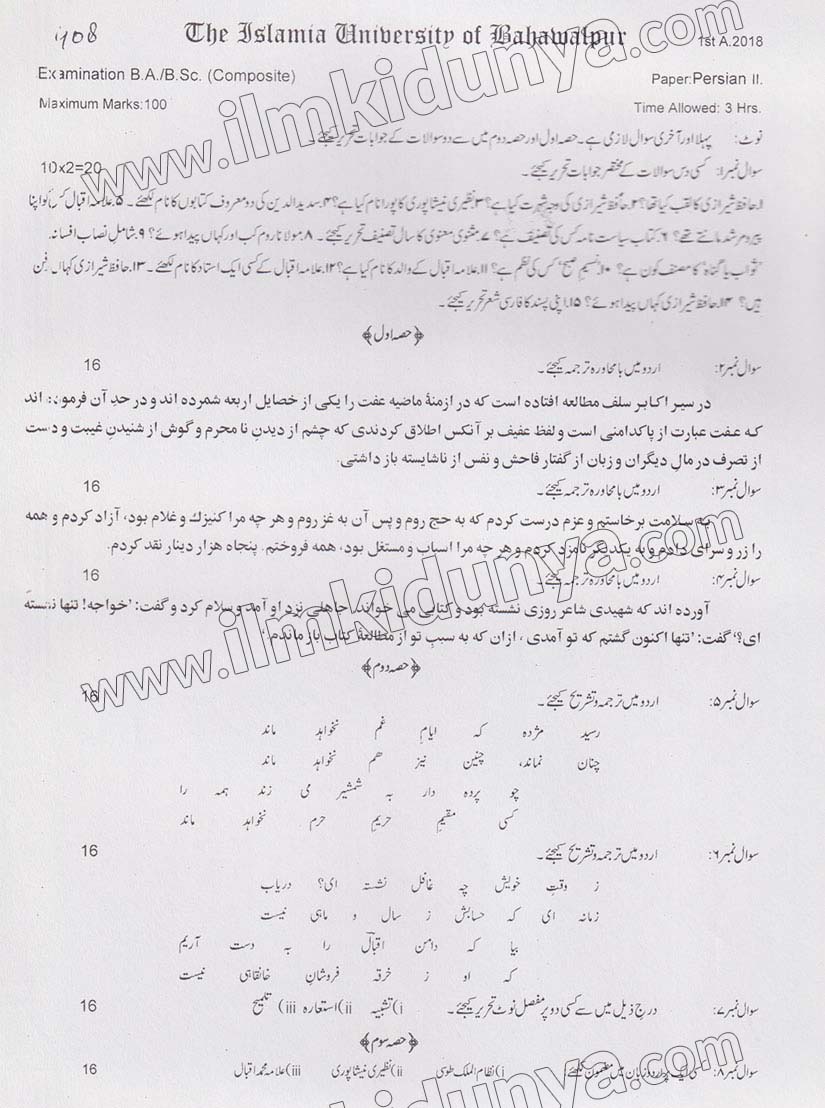 The Islamia University of Bahawalpur
1st A.2018
Examination B.A./B.Sc. (Composite)
Paper:Persian II.
Maximum Marks:100
Time Allowed: 3 Hrs.
نوٹ: پہلا اور آخری سوال لازمی ہے۔ حصہ اول اور حصہ دوم میں سے دو سوالات کے جوابات تحریر کیجئے۔
سوال نمبر۱: کسی دس سوالات کے مختصر جوابات تحریر کیجئے۔ 10x2=20
۱۔حافظ شیرازی کا لقب کیا تھا؟ ۲۔حافظ شیرازی کی وجہ شہرت کیا ہے؟ ۳۔نظیری نیشاپوری کا پورا نام کیا ہے؟ ۴۔سدید الدین کی دو معروف کتابوں کا نام لکھئے۔ ۵۔علامہ اقبال کس کو اپنا
پیر و مرشد مانتے تھے؟ ۶۔کتاب سیاست نامہ کس کی تصنیف ہے؟ ۷۔مثنوی معنوی کا سال تصنیف تحریر کیجئے۔ ۸۔مولانا روم کب اور کہاں پیدا ہوئے؟ ۹۔شامل نصاب افسانہ
'ثواب یا گناہ' کا مصنف کون ہے؟ ۱۰۔'نسیم صبح' کس کی نظم ہے؟ ۱۱۔علامہ اقبال کے والد کا نام کیا ہے؟ ۱۲۔علامہ اقبال کے کسی ایک استاد کا نام لکھئے۔ ۱۳۔حافظ شیرازی کہاں دفن
ہیں؟ ۱۴۔حافظ شیرازی کہاں پیدا ہوئے؟ ۱۵۔اپنی پسند کا فارسی شعر تحریر کیجئے۔
﴿حصہ اول﴾
سوال نمبر۲: اردو میں بامحاورہ ترجمہ کیجئے۔ 16
در سیر اکابر سلف مطالعه افتاده است که در ازمنهٔ ماضیه عفت را یکی از خصایل اربعه شمرده اند و در حدِ آن فرموده اند
که عفت عبارت از پاکدامنی است و لفظ عفیف بر آنکس اطلاق کردندی که چشم از دیدنِ نا محرم و گوش از شنیدنِ غیبت و دست
از تصرف در مالِ دیگران و زبان از گفتار فاحش و نفس از ناشایسته باز داشتی.
سوال نمبر۳: اردو میں بامحاورہ ترجمہ کیجئے۔ 16
به سلامت برخاستم و عزم درست کردم که به حج روم و پس آن به غز روم و هر چه مرا کنیزك و غلام بود، آزاد کردم و همه
را زر و سرای دادم و به یکدیگر نامزد کردم و هر چه مرا اسباب و مستغل بود، همه فروختم. پنجاه هزار دینار نقد کردم.
سوال نمبر۴: اردو میں بامحاورہ ترجمہ کیجئے۔ 16
آورده اند که شهیدی شاعر روزی نشسته بود و کتابی می خواند، جاهلی نزد او آمد و سلام کرد و گفت: 'خواجه! تنها نشسته
ای؟' گفت: 'تنها اکنون گشتم که تو آمدی، ازان که به سببِ تو از مطالعهٔ کتاب باز ماندم.'
﴿حصہ دوم﴾
سوال نمبر۵: اردو میں ترجمہ و تشریح کیجئے۔ 16
رسید مژده که ایامِ غم نخواهد ماند
چنان نماند، چنین نیز هم نخواهد ماند
چو پرده دار به شمشیر می زند همه را
کسی مقیم حریمِ حرم نخواهد ماند
سوال نمبر۶: اردو میں ترجمہ و تشریح کیجئے۔ 16
ز وقتِ خویش چه غافل نشسته ای؟ دریاب
زمانه ای که حسابش ز سال و ماهی نیست
بیا که دامن اقبالؔ را به دست آریم
که او ز خرقه فروشانِ خانقاهی نیست
سوال نمبر۷: درج ذیل میں سے کسی دو پر مفصل نوٹ تحریر کیجئے۔ i) تشبیہ ii) استعارہ iii) تلمیح 16
﴿حصہ سوم﴾
سوال نمبر۸: کسی ایک پر اردو زبان میں مضمون لکھئے: i) نظام الملک طوسی ii) نظیری نیشاپوری iii) علامہ محمد اقبال 16
www.ilmkidunya.com
www.ilmkidunya.com
www.ilmkidunya.com
www.ilmkidunya.com